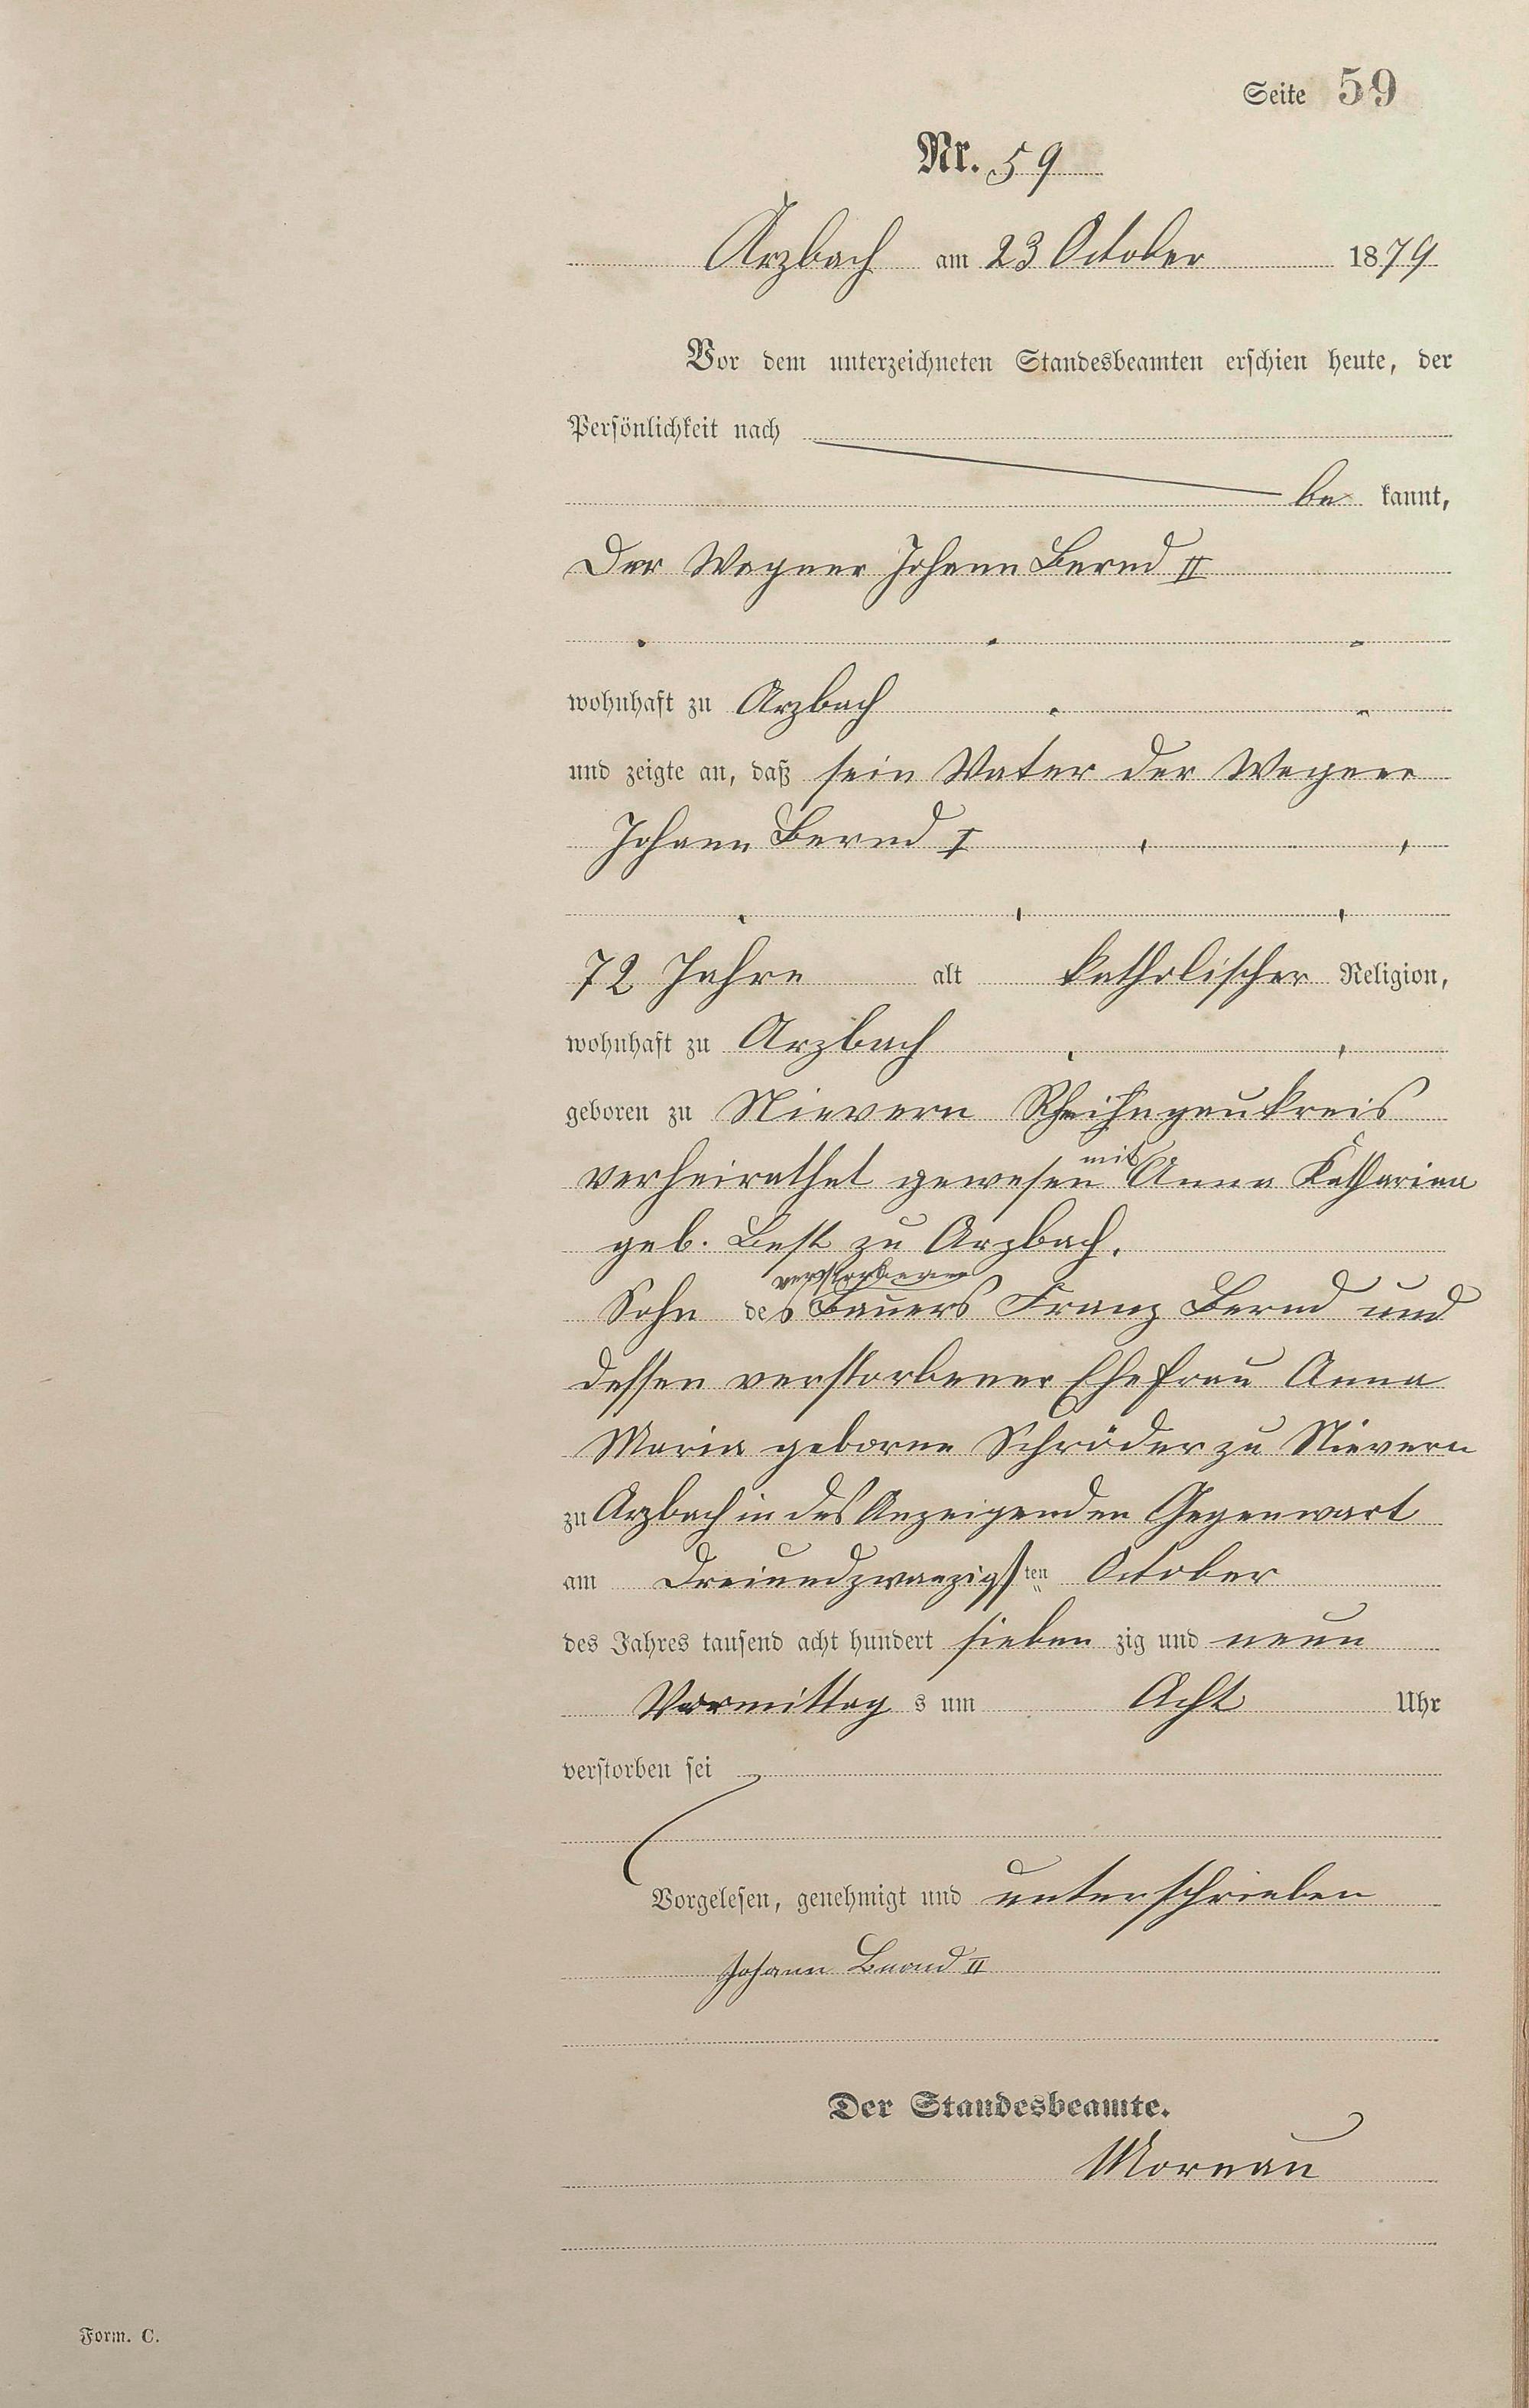 Seite 59
Nr. 59
Arzbach am 23 October 1879
Vor dem unterzeichneten Standesbeamten erschien heute, der
Persönlichkeit nach
be kannt,
Der Wagner Johann Bernd II
wohnhaft zu Arzbach
und zeigte an, daß sein Vater der Wagner
Johann Bernd I
72 Jahre alt katholischer Religion,
wohnhaft zu Arzbach
geboren zu Nievern Rheihngaukreis
verheirathet gewesen mit Anna Katharina
geb. Best zu Arzbach.
Sohn des verstorbenen Bauers Franz Bernd und
dessen verstorbener Ehefrau Anna
Maria geborne Schröder zu Nievern
zu Arzbach in des Anzeigenden Gegenwart
am Dreiundzwanzigsten October
des Jahres tausend acht hundert sieben zig und neun
Vormittag s um Acht Uhr
verstorben sei
Vorgelesen, genehmigt und unterschrieben
Johann Bernd II
Der Standesbeamte.
Mornau
Form. C.